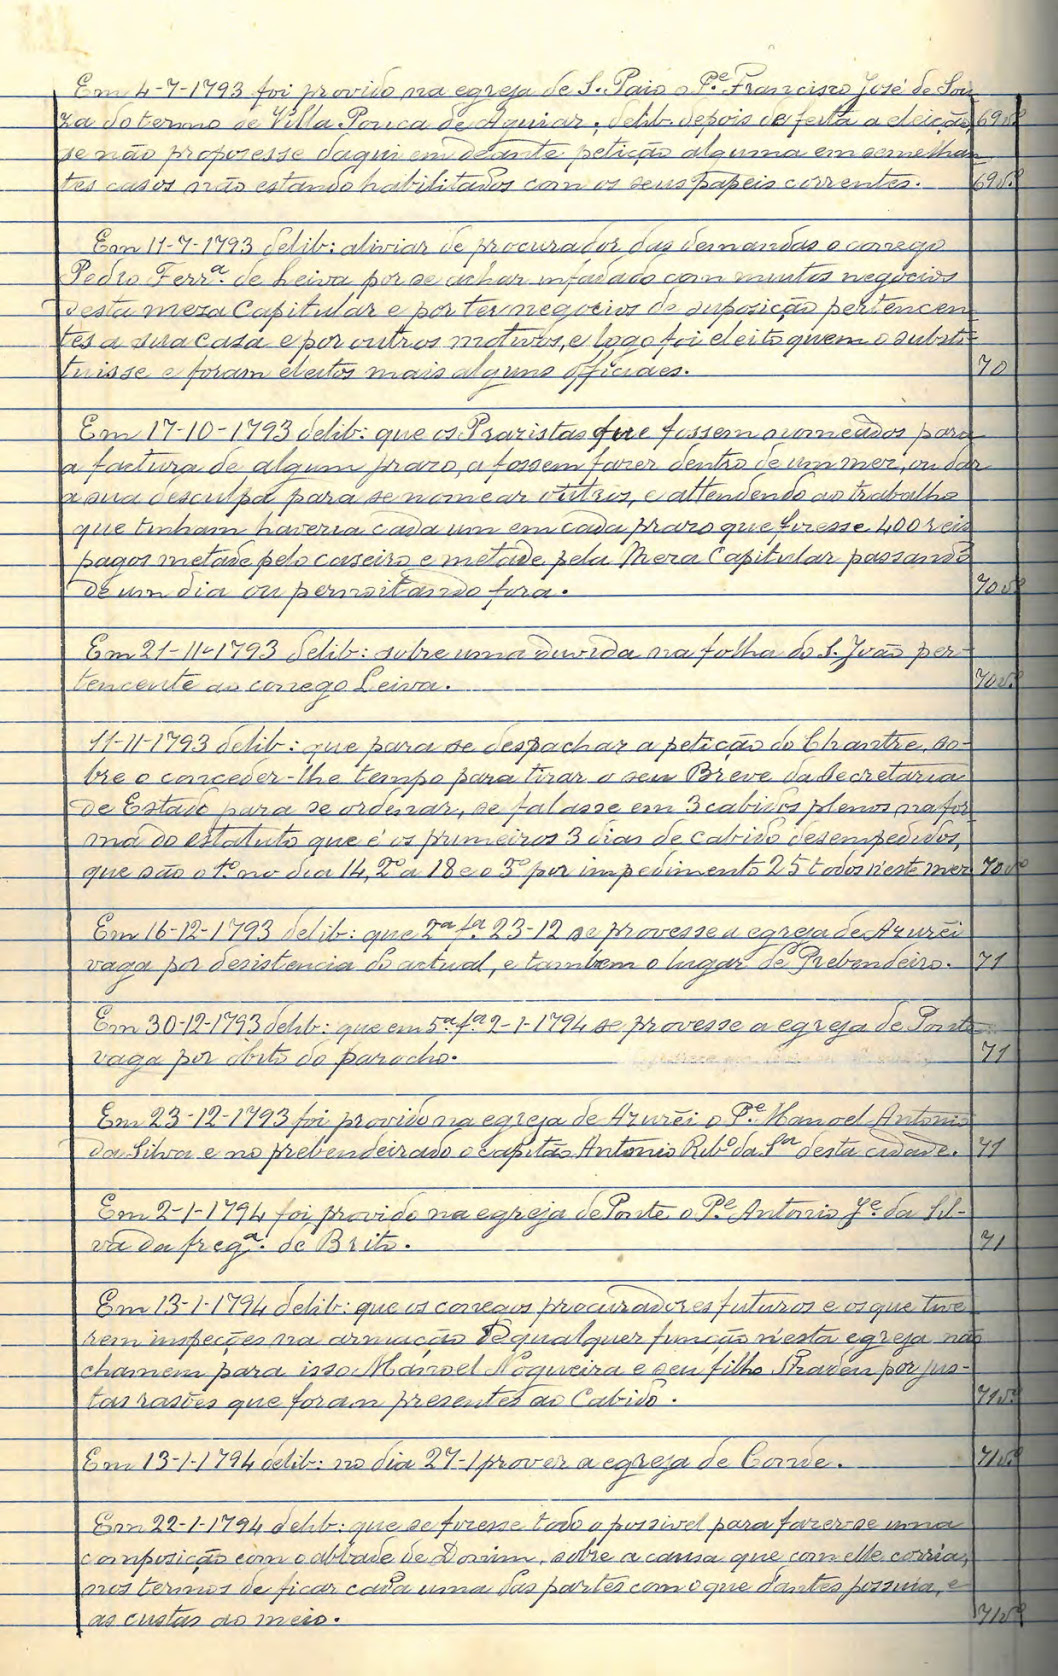 Em 4-7-1793 foi provido na egreja de S. Paio o Pe. Francisco José de Sou
za do termo de Villa Pouca de Aguiar; delib. depois de feita a eleição, 69vº
se não propozesse daqui em deante petição alguma em semelhan
tes casos não estando habilitados com os seus papeis correntes. 69vº
Em 11-7-1793 delib: aliviar de procurador das demandas o conego
Pedro Ferrª. de Leiva por se achar infadado com muitos negocios
desta meza Capitular e por ter negocios de suposição pertencen
tes a sua casa e por outros motivos, e logo foi eleito quem o substi-
tuisse e foram eleitos mais alguns officiaes. 70
Em 17-10-1793 delib: que os Prazistas que fossem nomeados para
a factura de algum prazo, a fossem fazer dentro de um mez, ou dar
a sua desculpa para se nomear outros, e attendendo ao trabalho
que tinham haveria cada um em cada prazo que fizesse 400 reis
pagos metade pelo caseiro e metade pela Meza Capitular passando
de um dia ou pernoitando fora. 70vº
Em 21-11-1793 delib: sobre uma duvida na folha do S. João per-
tencente ao conego Leiva. 70vº
11-11-1793 delib: que para se despachar a petição do Chantre, so-
bre o conceder-lhe tempo para tirar o seu Breve da Secretaria
de Estado para se ordenar, se falasse em 3 cabidos plenos na for
ma do estatuto que é os primeiros 3 dias de cabido desempedidos,
que são o 1º no dia 14, 2º a 18 e o 3º por impedimento 25 todos n'este mez 70vº
Em 16-12-1793 delib: que 2ª fª 23-12 se provesse a egreja de Azurêi
vaga por desistencia do actual, e tambem o lugar de Prebendeiro. 71
Em 30-12-1793 delib: que em 5ª fª 2-1-1794 se provesse a egreja de Ponte
vaga por obito do parocho. 71
Em 23-12-1793 foi provido na egreja de Azurêi o Pe. Manoel Antonio
da Silva e no prebendeirado o capitão Antonio Ribº da Sª desta cidade. 71
Em 2-1-1794 foi provido na egreja de Ponte o Pe. Antonio Je. da Sil-
va da fregª. de Brito. 71
Em 13-1-1794 delib: que os conegos procuradores futuros e os que tive
rem inspeções na armação de qualquer função n'esta egreja não
chamem para isso Manoel Nogueira e seu filho por jus-
tas rasões que foram presentes ao Cabido. 71vº
Em 13-1-1794 delib: no dia 27-1 prover a egreja de Conde. 71vº
Em 22-1-1794 delib: que se fizesse todo o possivel para fazer-se uma
composição com o abbade de Donim, sobre a causa que com elle corria,
nos termos de ficar cada uma das partes com o que d'antes possuia, e
as custas ao meio. 71vº